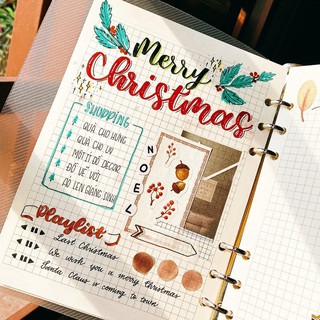 Merry
Christmas
SHOPPING
QUÀ CHO HƯNG
QUÀ CHO VY
MỘT ÍT ĐỒ DECOR
ĐỒ VẼ VỜI
ÁO LEN GIÁNG SINH
NOEL
Playlist
Last Christmas
We wish you a merry Christmas
Santa Claus is coming to town